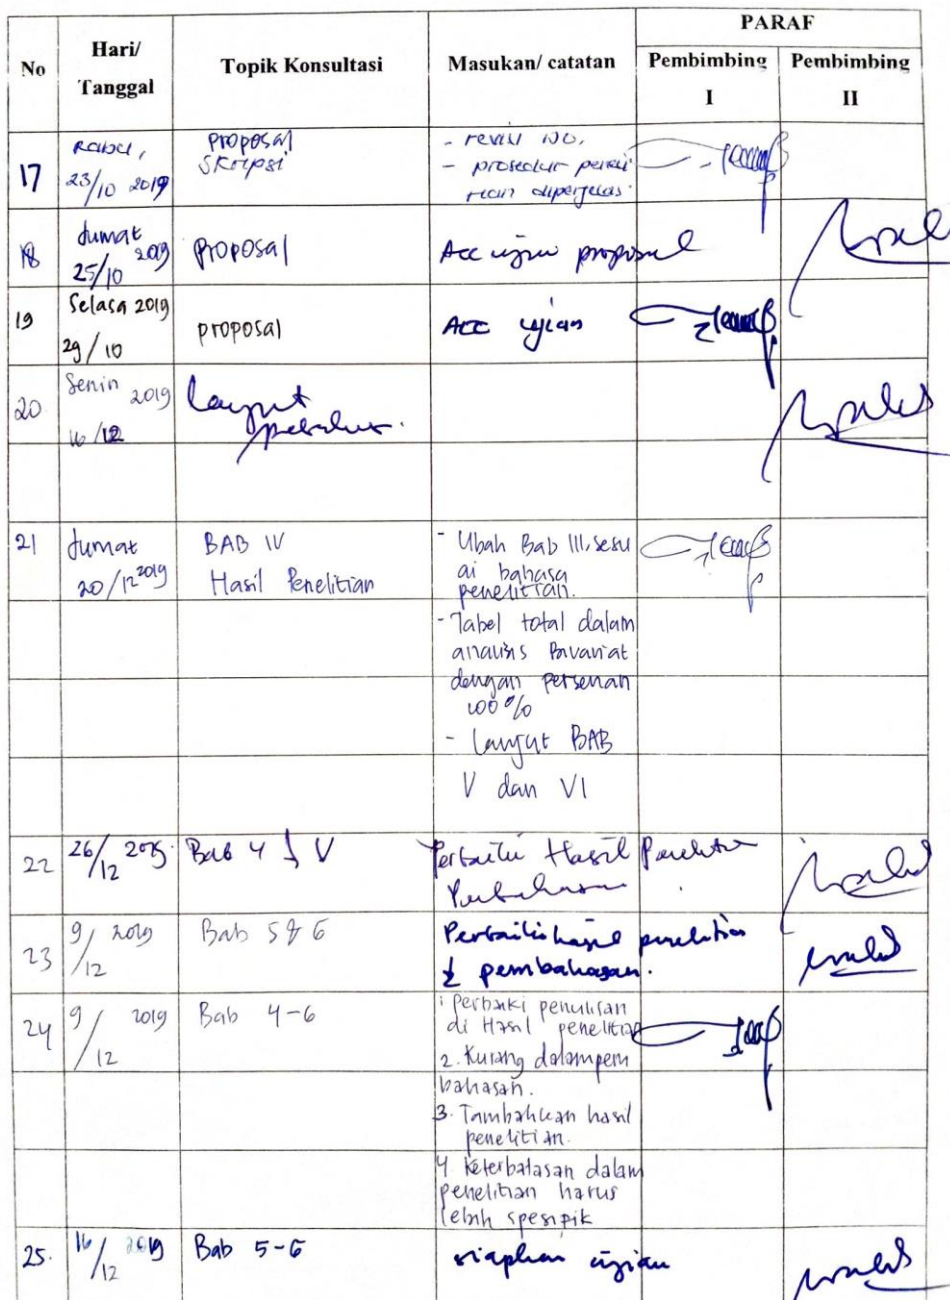 No Hari/ Tanggal Topik Konsultasi Masukan/ catatan PARAF
Pembimbing I Pembimbing II
17 Rabu, 23/10 2019 proposal skripsi - revisi DO.
- prosedur peneli tian diperjelas.
18 Jumat 25/10 2019 proposal Acc ujian proposal
19 Selasa 2019 29/10 proposal Acc ujian
20 Senin 2019 16/12 Lanjut
21 Jumat 20/12 2019 BAB IV
Hasil Penelitian
- Ubah Bab III, sesu
ai bahasa
penelitian.
- Tabel total dalam
analisis Bivariat
dengan persenan
100%
- Lanjut BAB
V dan VI
22 26/12 Bab 4 & V Perbaiki Hasil Penelitian
Pembahasan
23 9/12 2019 Bab 5 & 6 Perbaiki hasil penelitian
& pembahasan.
24 9/12 2019 Bab 4-6
1 perbaiki penulisan
di Hasil penelitian
2. Kurang dalam pem
bahasan.
3. Tambahkan hasil
penelitian.
4. Keterbatasan dalam
penelitian harus
lebih spesipik
25. 16/12 2019 Bab 5-6 siapkan ujian